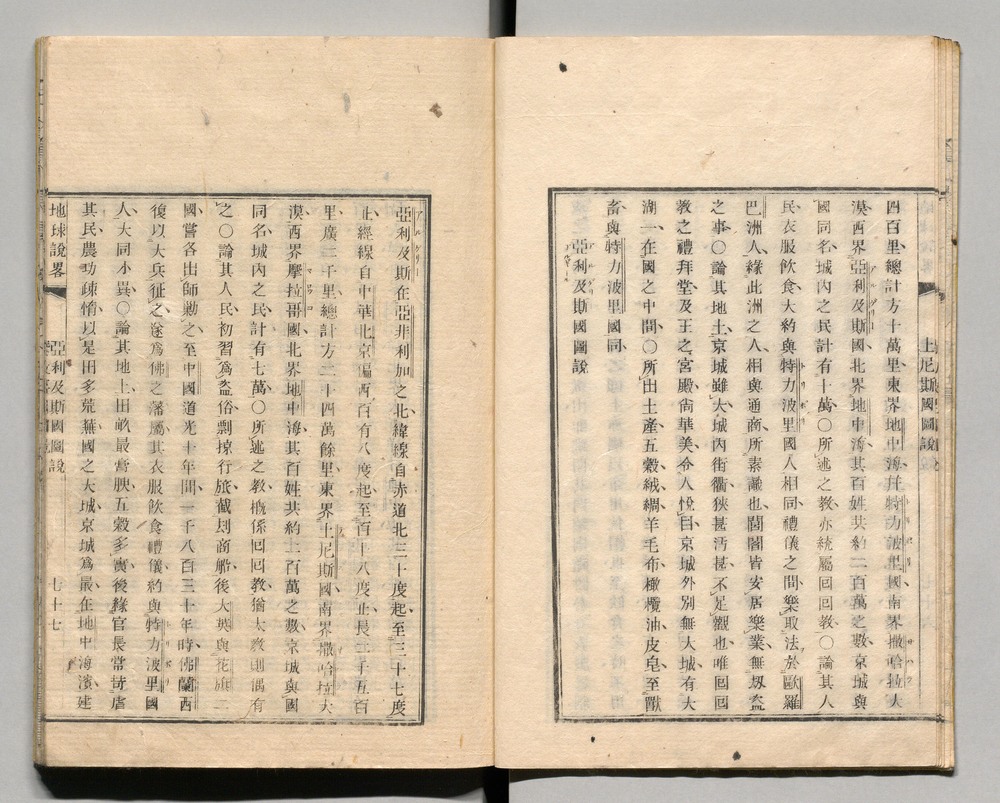 土尼斯國圖說
四百里總計方十萬里東界地中海幷特力波里國南界撒哈拉大
漠西界亞利及斯國北界地中海其百姓共約二百萬之數京城與
國同名城內之民計有十萬〇所述之敎亦統屬回回敎〇論其人
民衣服飮食大約與特力波里國人相同禮儀之間樂取法於歐羅
巴洲人緣此洲之人相與通商所素讓也閭閻皆安居樂業無刼盜
之事〇論其地土京城雖大城內街衢狹甚汚甚不足觀也唯回回
敎之禮拜堂及王之宮殿尙華美令人悅目京城外別無大城有大
湖一在國之中間〇所出土產五穀絨綢羊毛布橄欖油皮皂至獸
畜與特力波里國同
亞利及斯國圖說
亞利及斯在亞非利加之北緯線自赤道北三十度起至三十七度
止經線自中華北京偏西百有八度起至百十八度止長二千五百
里廣二千里總計方二十四萬餘里東界土尼斯國南界撒哈拉大
漠西界摩拉哥國北界地中海其百姓共約二百萬之數京城與國
同名城內之民計有七萬〇所述之敎槪係回回敎猶太敎則偶有
之〇論其人民初習爲盜俗剽掠行旅截刦商船後大英與花旗二
國嘗各出師勦之至中國道光十年間一千八百三十年時佛蘭西
復以大兵征之遂爲佛之藩屬其衣服飮食禮儀約與特力波里國
人大同小異〇論其地土田畝最膏腴五穀多喪後緣官長常苛虐
其民農功疎惰以是田多荒蕪國之大城京城爲最在地中海濱建
地球說畧 亞利及斯國圖說 七十七